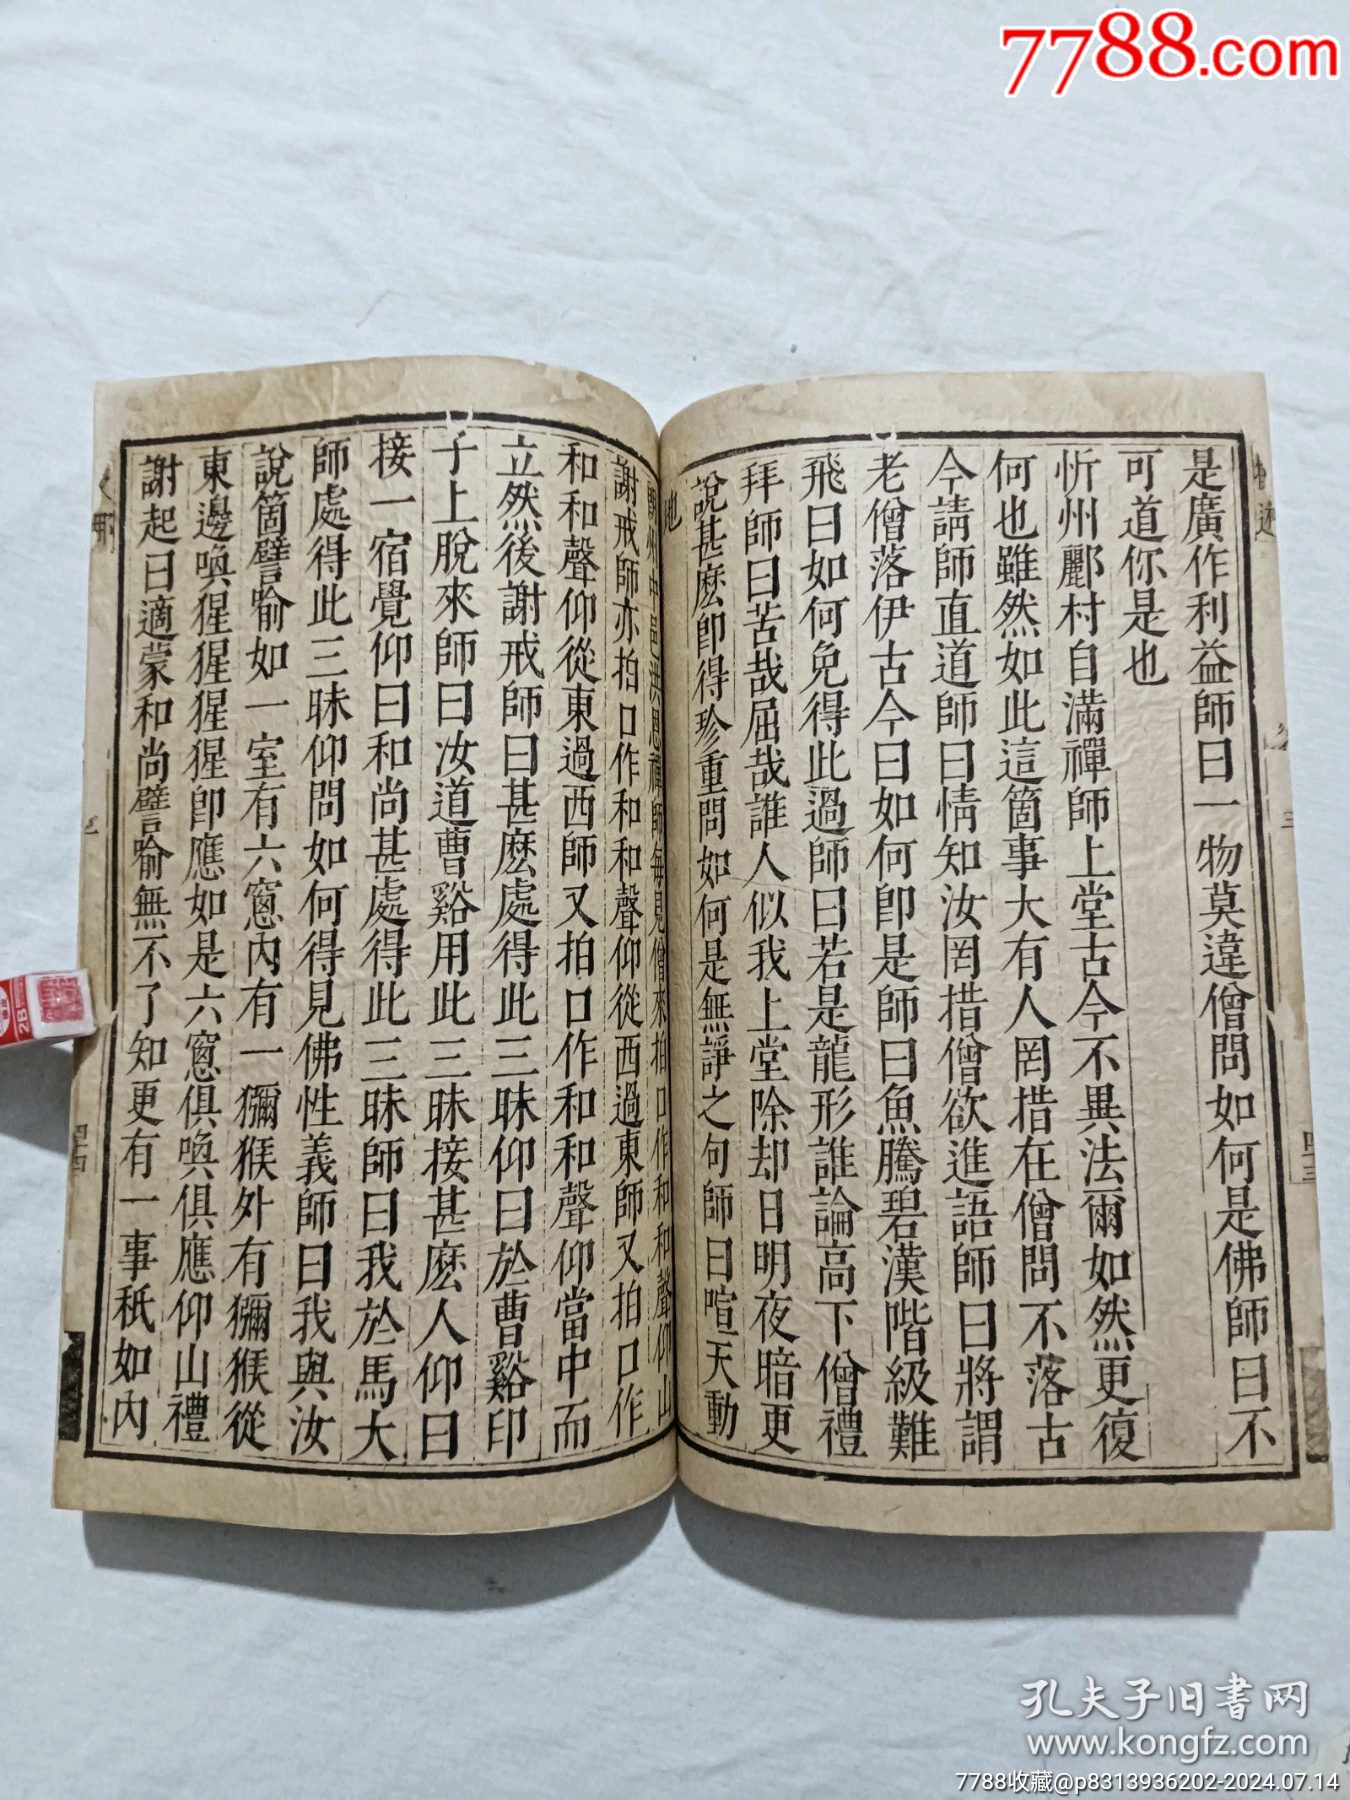 7788.com
是廣作利益師曰一物莫違僧問如何是佛師曰不
可道你是也
忻州酈村自滿禪師上堂古今不異法爾如然更復
何也雖然如此這箇事大有人罔措在僧問不落古
今請師直道師曰情知汝罔措僧欲進語師曰將謂
老僧落伊古今曰如何即是師曰魚騰碧漢階級難
飛曰如何免得此過師曰若是龍形誰論高下僧禮
拜師曰苦哉屈哉誰人似我上堂除却日明夜暗更
說甚麽即得珍重問如何是無諍之句師曰喧天動
地
中邑洪恩禪師每見僧來拍口作和和聲仰山
謝戒師亦拍口作和和聲仰從西過東師又拍口作
和和聲仰從東過西師又拍口作和和聲仰當中而
立然後謝戒師曰甚麽處得此三昧仰曰於曹谿印
子上脫來師曰汝道曹谿用此三昧接甚麽人仰曰
接一宿覺仰曰和尚甚處得此三昧師曰我於馬大
師處得此三昧仰問如何得見佛性義師曰我與汝
說箇譬喻如一室有六窻內有一獼猴外有獼猴從
東邊喚猩猩猩猩即應如是六窻俱喚俱應仰山禮
謝起曰適蒙和尚譬喻無不了知更有一事秖如內
2B
孔夫子旧書网
www.kongfz.com
7788收藏@p8313936202-2024.07.14